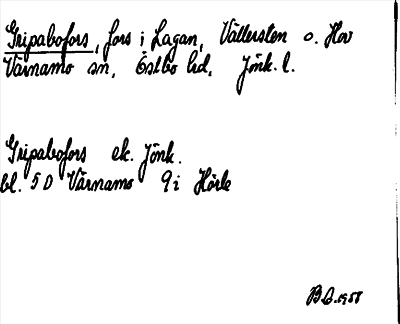 Gripabofors, fors i Lagan, Vällersten o. Hov
Värnamo sn, Östbo hd, Jönk. l.
Gripabofors ek. Jönk.
bl. 5 D Värnamo 9 i Hörle